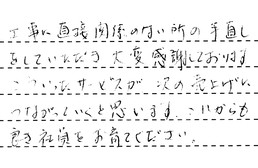 工事に直接関係のない所の手直し
をしていただき大変感謝しております
こういったサービスが次の売上げに
つながっていくと思います。これからも
良き社員をお育てください。